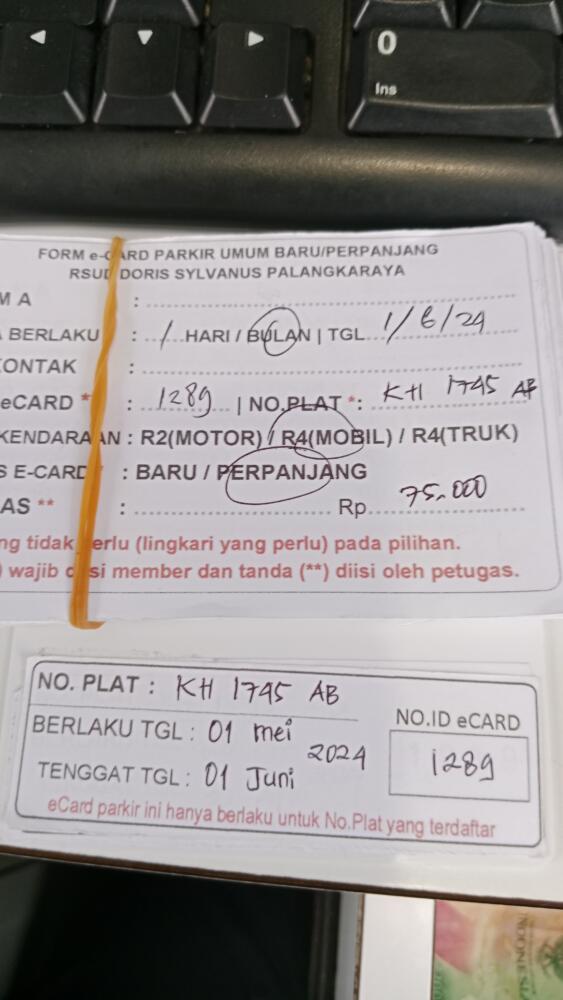 0
Ins
FORM e-CARD PARKIR UMUM BARU/PERPANJANG
RSUD DORIS SYLVANUS PALANGKARAYA
M A :
BERLAKU : 1 HARI / BULAN | TGL 1/6/24
ONTAK :
eCARD * : 1289 | NO.PLAT *: KH 1745 AB
KENDARAAN : R2(MOTOR) / R4(MOBIL) / R4(TRUK)
S E-CARD : BARU / PERPANJANG
AS ** : Rp 75.000
ng tidak perlu (lingkari yang perlu) pada pilihan.
) wajib diisi member dan tanda (**) diisi oleh petugas.
NO. PLAT : KH 1745 AB
BERLAKU TGL : 01 mei
2024
TENGGAT TGL : 01 Juni
NO.ID eCARD
1289
eCard parkir ini hanya berlaku untuk No.Plat yang terdaftar